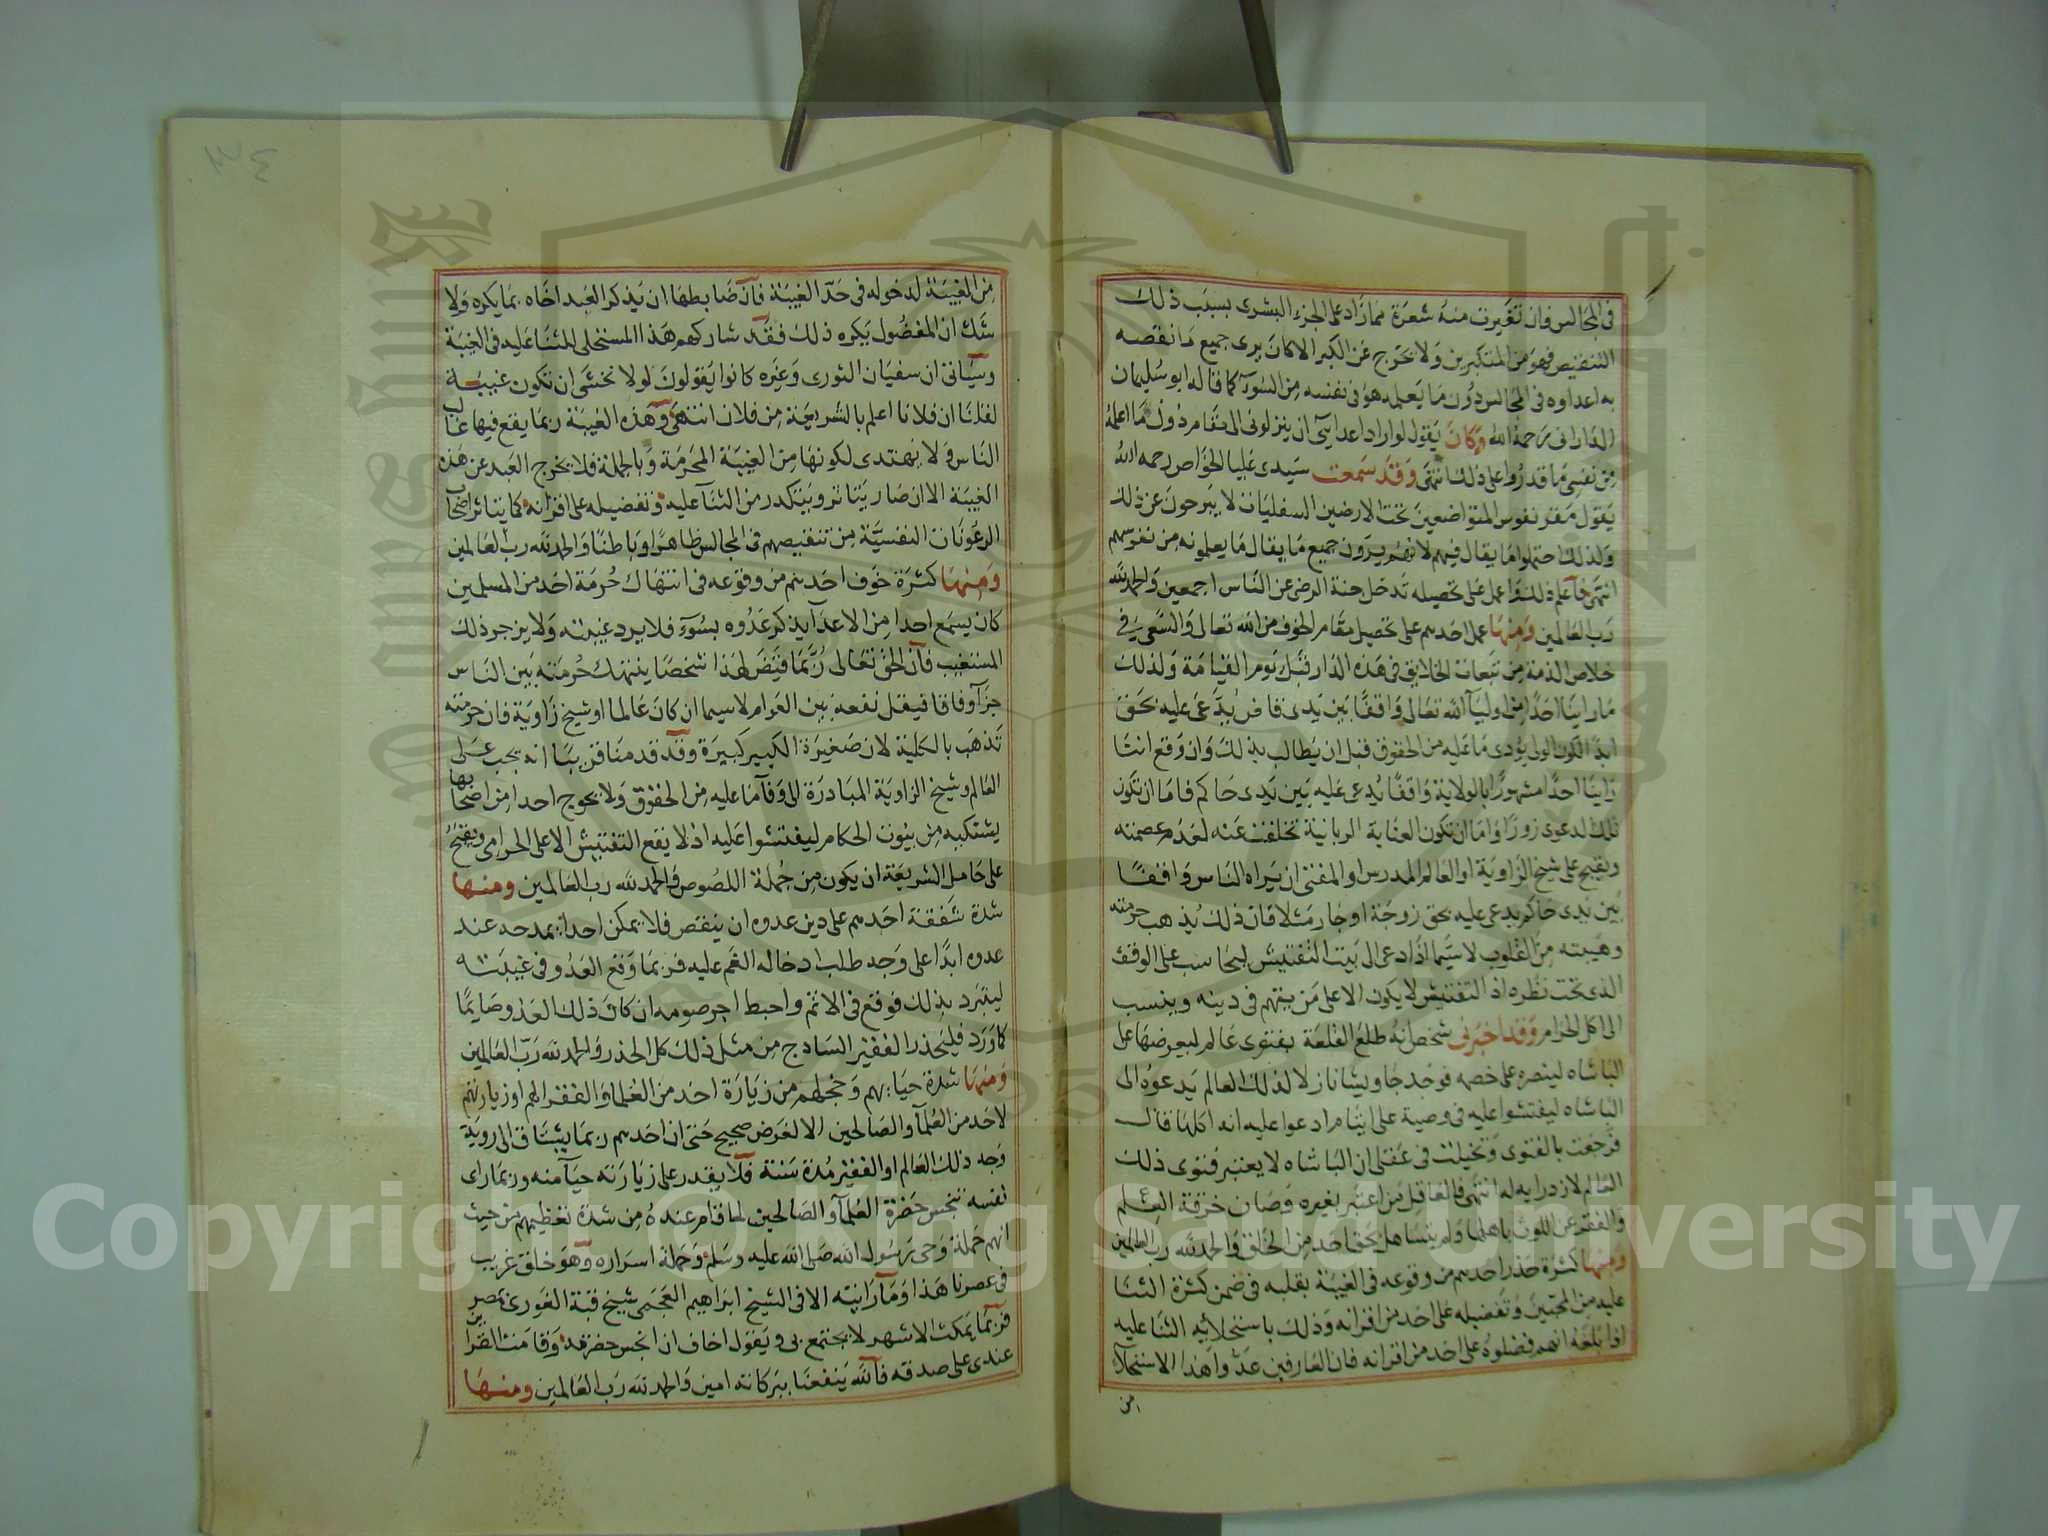 في المجالس وان تغيرت منه شعرة مما زاد على الجزء البشرى بسبب ذلك
التنقيص فهو من المتكبرين ولا يخرج عن الكبر الا كان يرى جميع ما نقصه
به اعداوه في المجالس دون ما يعلمه هو في نفسه من السوء كما قاله ابو سليمان
الداراني رحمه الله وكان يقول لو اراد اعدايي ان ينزلوني الى مقام دون ما اعلمه
من نفسي ما قدروا على ذلك انتهى وقد سمعت سيدى عليا الخواص رحمه الله
يقول مقر نفوس المتواضعين تحت الارضين السفليات لا يبرحون عن ذلك
ولذلك احتملوا ما يقال فيهم لانهم يرون جميع ما يقال ما يعلمونه من نفوسهم
انتهى فاعلم ذلك واعمل على تحصيله تدخل جنة الرضى عن الناس اجمعين والحمد لله
رب العالمين ومنها عمل احدهم على تحصيل مقام الخوف من الله تعالى والسعي في
خلاص الذمة من تبعات الخلايق في هذه الدار قبل يوم القيامة ولذلك
ما راينا احدا من اوليآ الله تعالى واقفا بين يدى قاض يدعى عليه بحق
ابدا لكون الولى يؤدى ما عليه من الحقوق قبل ان يطالب بذلك وان وقع اننا
راينا احدا مشهورا بالولاية واقفا يدعى عليه بين يدى حاكم فاما ان تكون
تلك لدعوى زورا واما ان تكون العناية الربانية تخلفت عنه لعدم عصمته
ويقبح على شيخ الزاوية او العالم المدرس او المفتى ان يراه الناس واقفا
بين يدى حاكم يدعى عليه بحق زوجة او جار مثلا فان ذلك يذهب حرمته
وهيبته من القلوب لاسيما اذا دعى الى بيت التفتيش ليحاسب على الوقف
الذى تحت نظره اذ التفتيش لا يكون الا على من يتهم في دينه وينسب
الى اكل الحرام وقد اخبرنى شخص انه طلع القلعة بفتوى عالم ليعرضها على
الباشاه لينصره على خصمه فوجد جاويشا نازلا لذلك العالم يدعوه الى
الباشاه ليفتشوا عليه في وصية على ايتام ادعوا عليه انه اكلها قال
فرجعت بالفتوى وتخيلت في عقلى ان الباشاه لا يعتبر فتوى ذلك
العالم لازدرايه له انتهى فالعاقل من اعتبر بغيره وصان خرقة العلم
والفقر عن اللوث باهلها ولم يتساهل بحق احد من الخلق والحمد لله رب العالمين
ومنها كثرة حذر احدهم من وقوعه في الغيبة بقلبه في ضمن كثرة الثنا
عليه من المحبين وتفضيله على احد من اقرانه وذلك باستحلائه الثنا عليه
اذا بلغه انهم فضلوه على احد من اقرانه فان العارفين عدوا هذا الاستحلآ
من
٣٤
من الغيبة لدخوله في حد الغيبة فان ضابطها ان يذكر العبد اخاه بما يكره ولا
شك ان المفضول يكره ذلك فقد شاركهم هذا المستحلى للثنا عليه في الغيبة
وسياتى ان سفيان الثورى وغيره كانوا يقولون لولا نخشى ان تكون غيبة
لقلنا ان فلانا اعلم بالشريعة من فلان انتهى وهذه الغيبة ربما يقع فيها غالب
الناس ولا يهتدى لكونها من الغيبة المحرمة وبالجملة فلا يخرج العبد عن هذه
الغيبة الا ان صار يتاثر ويتكدر من الثنآ عليه وتفضيله على اقرانه كما يتاثر اصحاب
الرعونات النفسية من تنقيصهم في المجالس ظاهرا وباطنا والحمد لله رب العالمين
ومنها كثرة خوف احدهم من وقوعه في انتهاك حرمة احد من المسلمين
كان يسمع احدا من الاعدآ يذكر عدوه بسوء فلا يرد غيبته ولا يزجر ذلك
المستغيب فان الحق تعالى ربما قيض لهذا شخصا ينتهك حرمته بين الناس
جزآ وفاقا فيقل نفعه بين العوام لاسيما ان كان عالما او شيخ زاوية فان حرمته
تذهب بالكلية لان صغيرة الكبير كبيرة وقد قدمنا قريبا انه يجب على
العالم وشيخ الزاوية المبادرة للوفآ ما عليه من الحقوق ولا يحوج احدا من اصحابها
يشتكيه من بيوت الحكام ليفتشوا عليه اذ لا يقع التفتيش الا على الحرامى ويقبح
على حامل الشريعة ان يكون من جملة اللصوص والحمد لله رب العالمين ومنها
شدة شفقة احدهم على دين عدوه ان ينقص فلا يمكن احدا يمدحه عند
عدوه ابدا على وجه طلب ادخاله الغم عليه فربما وقع العدو في غيبته
ليتبرد بذلك فوقع في الاثم واحبط اجر صومه ان كان ذلك العدو صايما
كما ورد فليحذر الفقير السادج من مثل ذلك كل الحذر والحمد لله رب العالمين
ومنها شدة حيايهم وخجلهم من زيارة احد من العلما والفقرا لهم او زيارتهم
لاحد من العلمآ والصالحين الا لغرض صحيح حتى ان احدهم ربما يشتاق الى روية
وجه ذلك العالم او الفقير مدة سنة فلا يقدر على زيارته حيآ منه وربما راى
نفسه تنجس حضرة العلمآ والصالحين لما قام عنده من شدة تعظيمهم من حيث
انهم حملة وحى رسول الله صلى الله عليه وسلم وحملة اسراره وهو خلق غريب
في عصرنا هذا وما رايته الا في الشيخ ابراهيم العجمى شيخ قبة الغورى بمصر
فربما يمكث الاشهر لا يجتمع بى ويقول اخاف ان انجس حضرته وقامت القراين
عندى على صدقه فالله ينفعنا ببركاته امين والحمد لله رب العالمين ومنها
Copyright © King Saud University